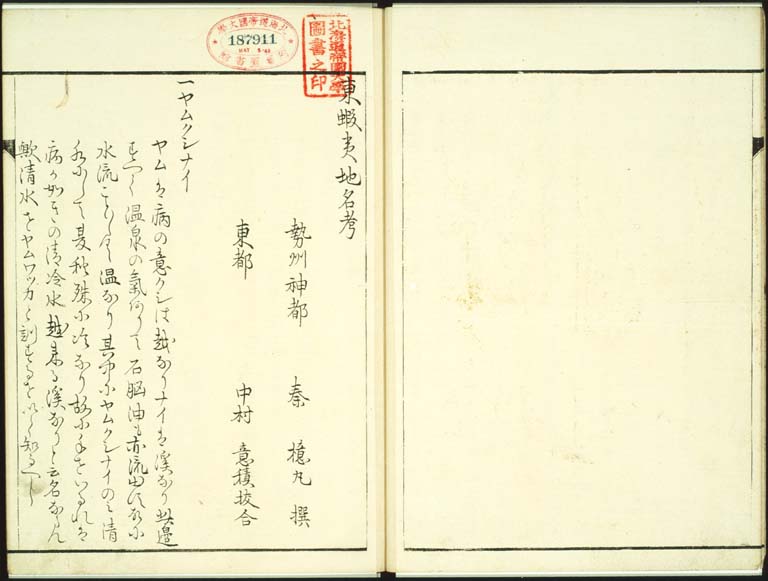 187911
北海道帝國大學
圖書之印
東蝦夷地名考
勢州神都 秦檍丸 撰
東都 中村意積 校合
一ヤムクシナイ
ヤムは病の意クシは越なりナイは溪なり此邊
すへて温泉の氣ありて石脳油も亦流出す故に
水流ことことく温なり其中にヤムクシナイのミ清
水にして夏秋殊に冷なり故に手をいるれは
病か如きの清冷水越来る溪なりと云名ならん
歟清水をヤムワツカと訓するを以て知るへし